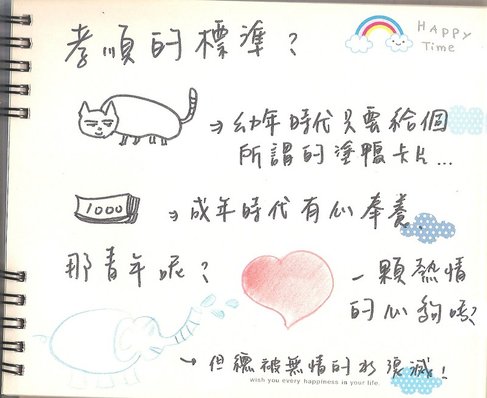 孝順的標準？
HAPPY
Time
→幼年時代只要給個
所謂的塗鴨卡片...
1000
→成年時代有心奉養
那青年呢？
一顆熱情
的心夠嗎?
→但總被無情的水澆滅！
wish you every happiness in your life.